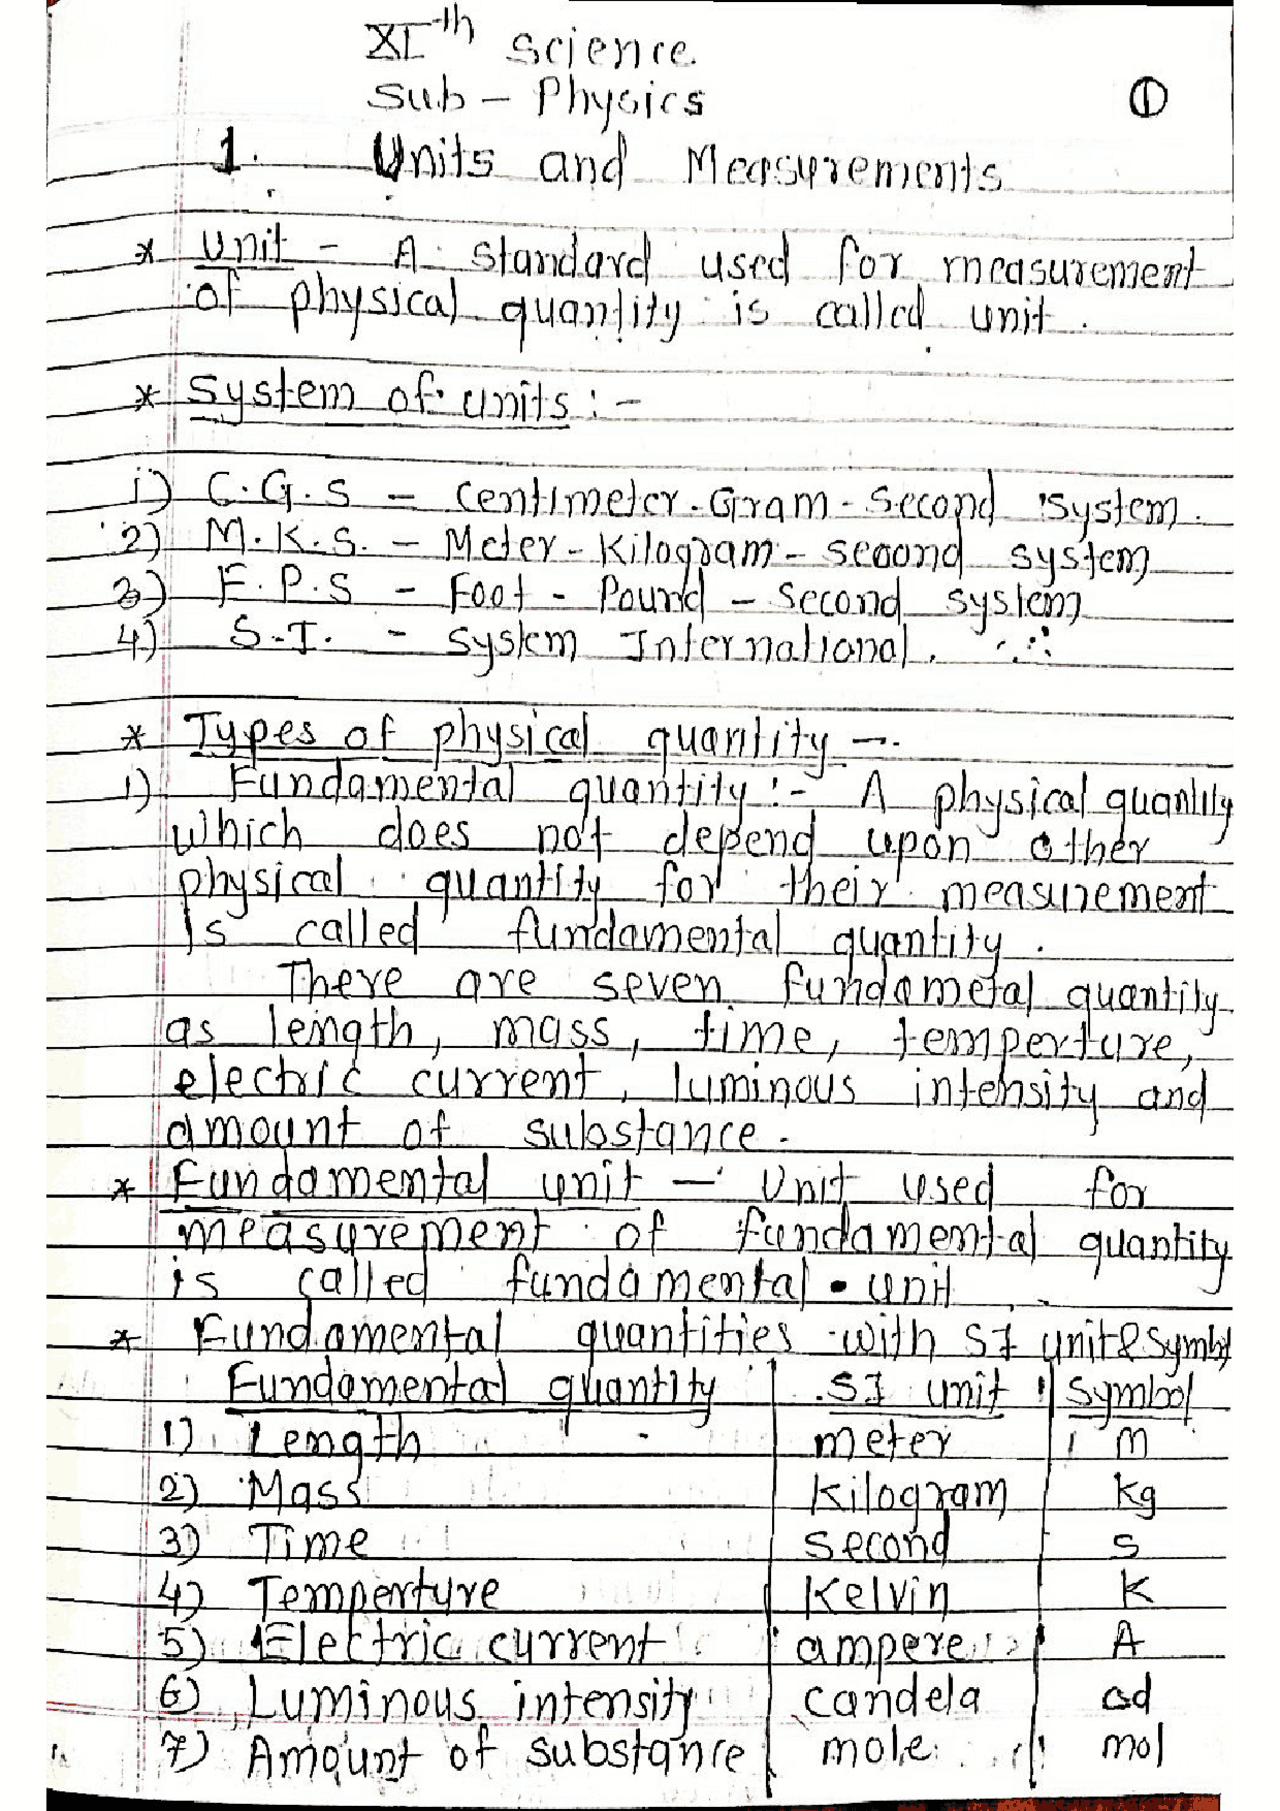 XI-th Science
Sub - Physics
①
1. Units and Measurements
* Unit - A standard used for measurement
of physical quantity is called unit.
* System of units :-
1) C.G.S - Centimeter-Gram-Second system.
2) M.K.S. - Meter-Kilogram-second system
3) F.P.S - Foot - Pound - Second system
4) S.I. - System International.
* Types of physical quantity -
1) Fundamental quantity :- A physical quantity
which does not depend upon other
physical quantity for their measurement
is called fundamental quantity.
There are seven fundametal quantity
as length, mass, time, temperture,
electric current, luminous intensity and
amount of substance.
* Fundamental unit - Unit used for
measurement of fundamental quantity
is called fundamental unit
* Fundamental quantities with SI unit & Symbol
Fundamental quantity SI unit Symbol
1) Length meter m
2) Mass Kilogram kg
3) Time second s
4) Temperture Kelvin K
5) Electric current ampere A
6) Luminous intensity candela cd
7) Amount of substance mole mol